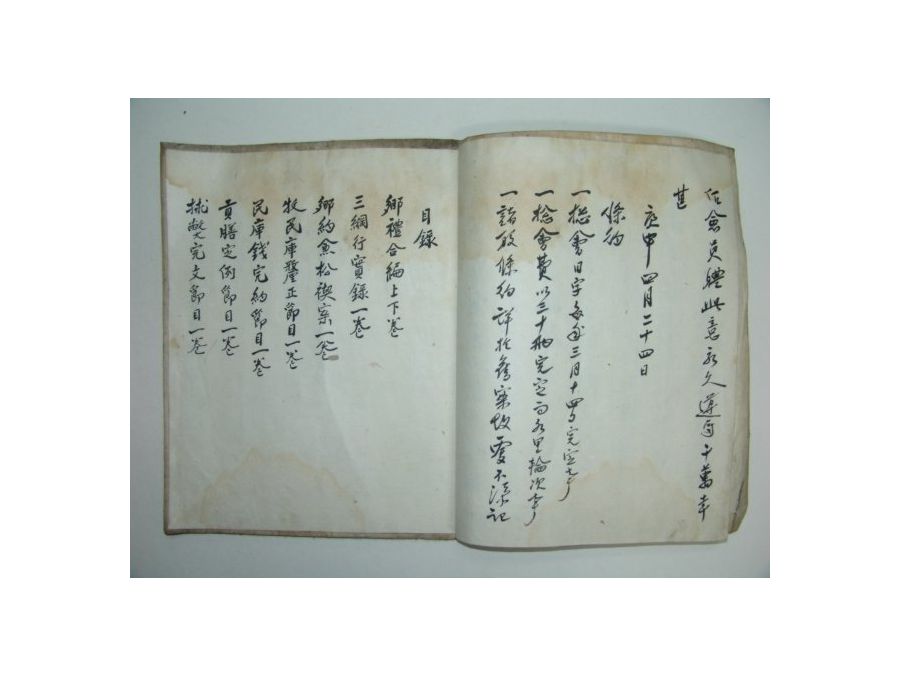 僉員體此意永久遵用千萬幸
甚
庚申四月二十四日
條約
一総會日字每年三月十四日完定事
一総會費以三十兩完定而各里輪次事
一諸般條約詳於舊案故更不添記
目錄
鄕禮合編上下卷
三綱行實錄一卷
鄕約禽松禊案一卷
牧民庫釐正節目一卷
民庫錢完約節目一卷
貢膳定例節目一卷
捄弊完文節目一卷